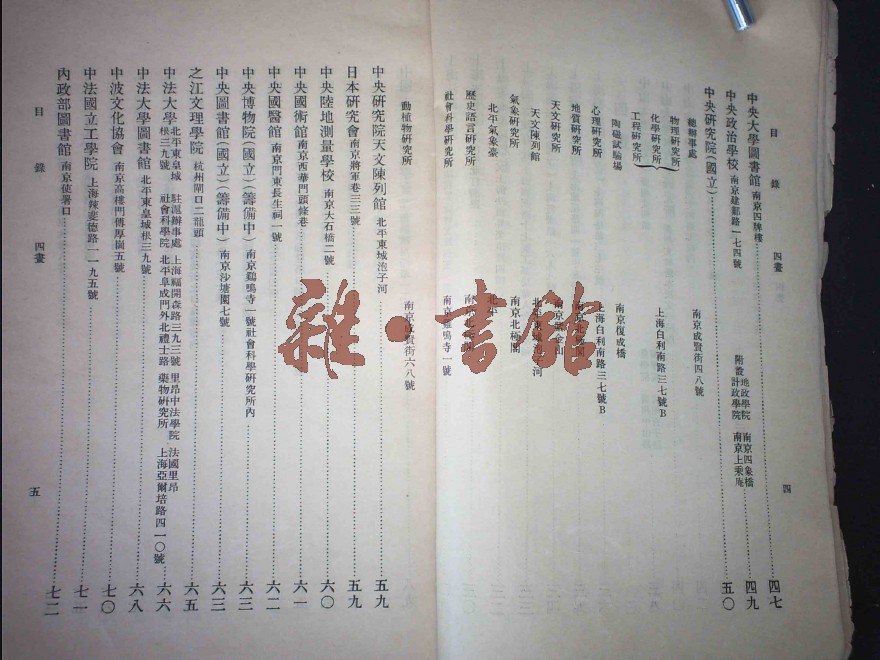 目錄 四畫 四
中央大學圖書館 南京四牌樓 四七
中央政治學校 南京建鄴路一七四號 附設 地政學院 南京四象橋 計政學院 南京上乘庵 四九
中央研究院(國立) 五〇
總辦事處 南京成賢街四八號
物理研究所
化學研究所 上海白利南路三七號B
工程研究所
陶磁試驗場 南京復成橋
心理研究所 上海白利南路三七號B
地質研究所
天文研究所
天文陳列館 北平東城泡子河
氣象研究所 南京北極閣
北平氣象臺 北平
歷史語言研究所 南京
社會科學研究所 南京雞鳴寺一號
動植物研究所 南京成賢街六八號
中央研究院天文陳列館 北平東城泡子河 五九
日本研究會 南京將軍巷三三號 五九
中央陸地測量學校 南京大石橋二號 六〇
中央國術館 南京西華門頭條巷 六一
中央國醫館 南京門東長生祠一號 六二
中央博物院(國立)(籌備中) 南京鷄鳴寺一號社會科學研究所內 六三
中央圖書館(國立)(籌備中) 南京沙塘園七號 六三
之江文理學院 杭州閘口二龍頭 六五
中法大學 北平東皇城根三九號 駐滬辦事處 上海福開森路三九三號 里昂中法學院 法國里昂 社會科學院 北平阜成門外北禮士路 藥物研究所 上海亞爾培路四一〇號 六六
中法大學圖書館 北平東皇城根三九號 六八
中波文化協會 南京高樓門傅厚崗五號 七〇
中法國立工學院 上海辣斐德路一一九五號 七一
內政部圖書館 南京使署口 七二
目錄 四畫 五
雜·書館